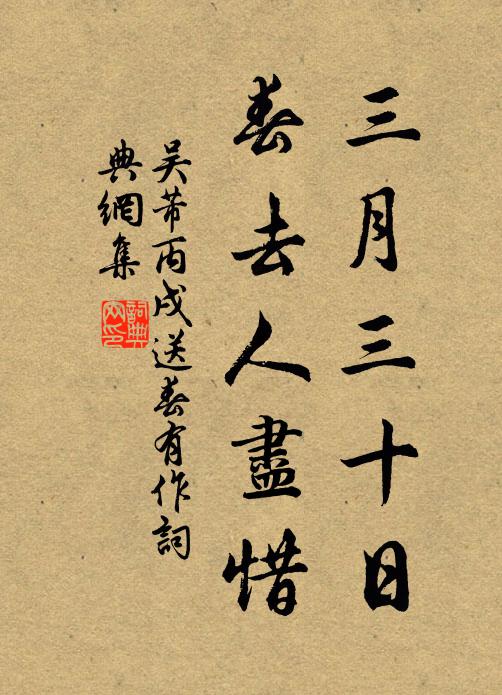 三月三十日
春去人盡惜
吴芾丙戌送春有作詞
典網集
詞典網印